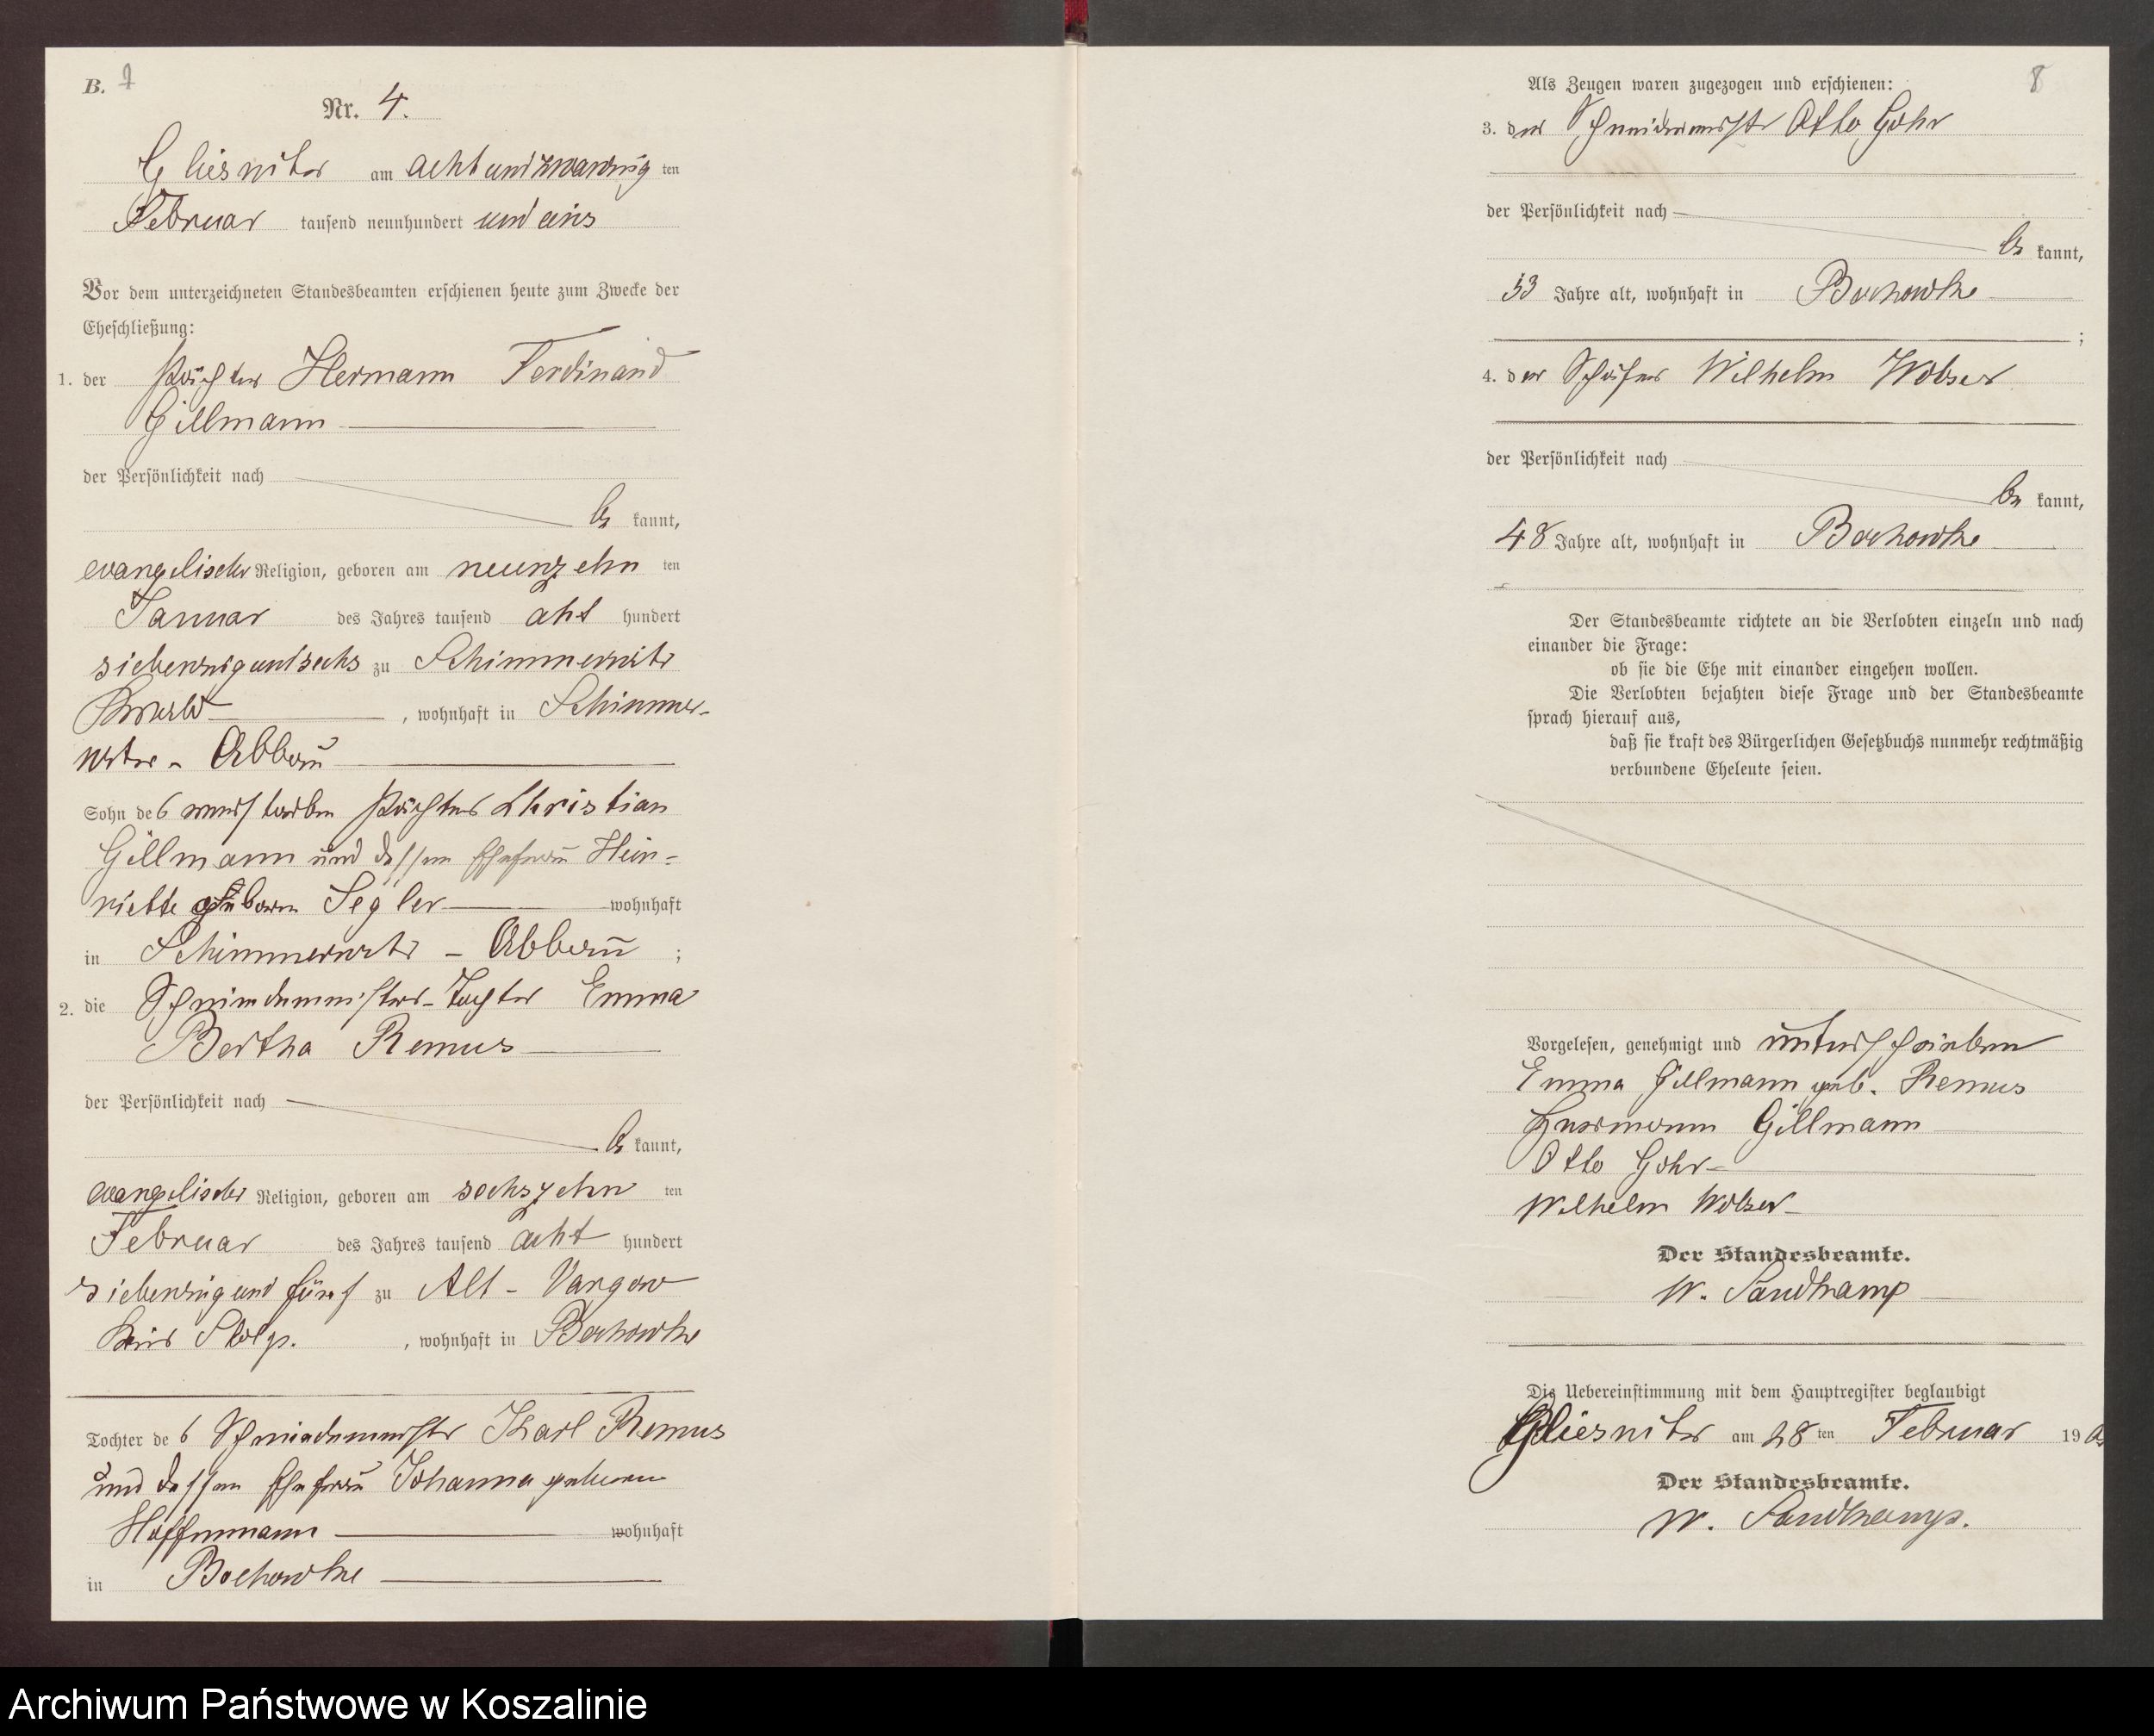 B. 7
Nr. 4.
Gliesnitz am achtundzwanzig ten
Februar tausend neunhundert und eins
Vor dem unterzeichneten Standesbeamten erschienen heute zum Zwecke der
Eheschließung:
1. der Pächter Hermann Ferdinand
Gillmann
der Persönlichkeit nach
be kannt,
evangelischer Religion, geboren am neunzehn ten
Januar des Jahres tausend acht hundert
siebenzigundsechs zu Schimmerwitz
, wohnhaft in Schimmer-
witz - Abbau
Sohn des verstorbenen Pächters Christian
Gillmann und dessen Ehefrau Hein-
riette geboren Segler wohnhaft
in Schimmerwitz - Abbau ;
2. die Schneidermeister-Tochter Emma
Bertha Remus
der Persönlichkeit nach
be kannt,
evangelischer Religion, geboren am sechszehn ten
Februar des Jahres tausend acht hundert
siebenzigund fünf zu Alt - Vargow
Kreis Stolp. , wohnhaft in Bochowke
Tochter des Karl Remus
und dessen Ehefrau Johanna geboren
Hoffmann wohnhaft
in Bochowke
Als Zeugen waren zugezogen und erschienen:
8
3. der Schneidermeister Otto Gohr
der Persönlichkeit nach
be kannt,
33 Jahre alt, wohnhaft in Bochowke
;
4. der Schäfer Wilhelm Wobser
der Persönlichkeit nach
be kannt,
48 Jahre alt, wohnhaft in Bochowke
Der Standesbeamte richtete an die Verlobten einzeln und nach
einander die Frage:
ob sie die Ehe mit einander eingehen wollen.
Die Verlobten bejahten diese Frage und der Standesbeamte
sprach hierauf aus,
daß sie kraft des Bürgerlichen Gesetzbuchs nunmehr rechtmäßig
verbundene Eheleute seien.
Vorgelesen, genehmigt und unterschrieben
Emma Gillmann geb. Remus
Hermann Gillmann
Otto Gohr
Wilhelm Wobser
Der Standesbeamte.
W. Sandkamp
Die Uebereinstimmung mit dem Hauptregister beglaubigt
Gliesnitz am 28 ten Februar 19 01
Der Standesbeamte.
W. Sandkamp.
Archiwum Państwowe w Koszalinie